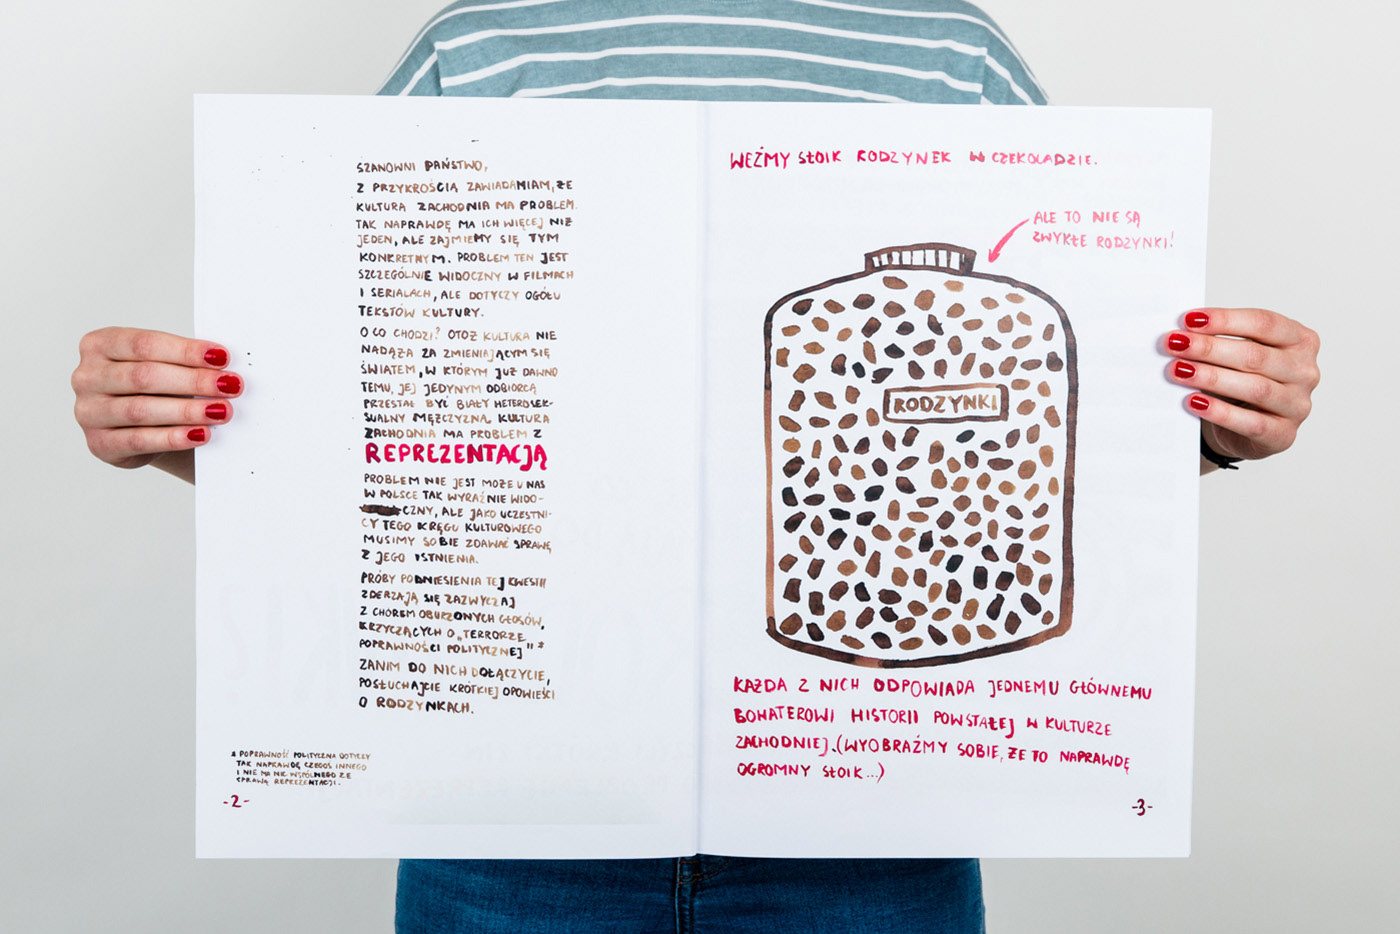 SZANOWNI PAŃSTWO,
Z PRZYKROŚCIĄ ZAWIADAMIAM, ŻE
KULTURA ZACHODNIA MA PROBLEM.
TAK NAPRAWDĘ MA ICH WIĘCEJ NIŻ
JEDEN, ALE ZAJMIEMY SIĘ TYM
KONKRETNYM. PROBLEM TEN JEST
SZCZEGÓLNIE WIDOCZNY W FILMACH
I SERIALACH, ALE DOTYCZY OGÓŁU
TEKSTÓW KULTURY.
O CO CHODZI? OTÓŻ KULTURA NIE
NADĄŻA ZA ZMIENIAJĄCYM SIĘ
ŚWIATEM, W KTÓRYM JUŻ DAWNO
TEMU, JEJ JEDYNYM ODBIORCĄ
PRZESTAŁ BYĆ BIAŁY HETEROSEK-
SUALNY MĘŻCZYZNA. KULTURA
ZACHODNIA MA PROBLEM Z
REPREZENTACJĄ
PROBLEM NIE JEST MOŻE U NAS
W POLSCE TAK WYRAŹNIE WIDO-
CZNY, ALE JAKO UCZESTNI-
CY TEGO KRĘGU KULTUROWEGO
MUSIMY SOBIE ZDAWAĆ SPRAWĘ
Z JEGO ISTNIENIA.
PRÓBY PODNIESIENIA TEJ KWESTII
ZDERZAJĄ SIĘ ZAZWYCZAJ
Z CHÓREM OBURZONYCH GŁOSÓW,
KRZYCZĄCYCH O „TERRORZE
POPRAWNOŚCI POLITYCZNEJ" *
ZANIM DO NICH DOŁĄCZYCIE,
POSŁUCHAJCIE KRÓTKIEJ OPOWIEŚCI
O RODZYNKACH.
* POPRAWNOŚĆ POLITYCZNA DOTYCZY
TAK NAPRAWDĘ CZEGOŚ INNEGO
I NIE MA NIC WSPÓLNEGO ZE
SPRAWĄ REPREZENTACJI.
-2-
WEŹMY SŁOIK RODZYNEK W CZEKOLADZIE.
ALE TO NIE SĄ
ZWYKŁE RODZYNKI!
RODZYNKI
KAŻDA Z NICH ODPOWIADA JEDNEMU GŁÓWNEMU
BOHATEROWI HISTORII POWSTAŁEJ W KULTURZE
ZACHODNIEJ. (WYOBRAŹMY SOBIE, ŻE TO NAPRAWDĘ
OGROMNY SŁOIK...)
-3-